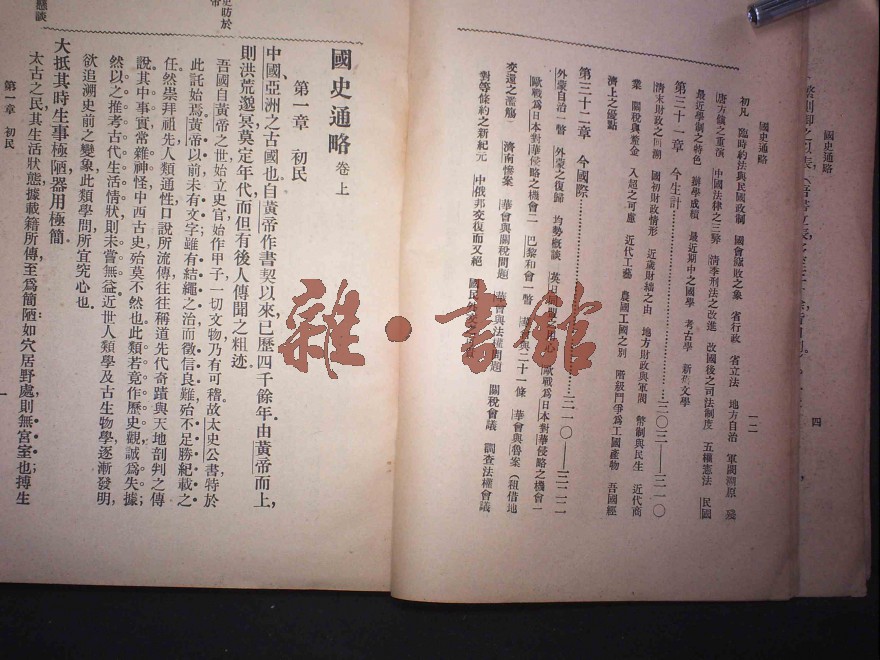 國史通略
四
國史通略
一二
初凡 臨時約法與民國政制 國會隳敗之象 省行政 省立法 地方自治 軍閥溯原 殘
唐方鎮之重演 中國法律之三弊 清季刑法之改進 改國後之司法制度 五種憲法 民國
最近學制之特色 辦學成績 最近期中之國學 考古學 新舊文學
第三十一章 今生計……三〇三—三一〇
清末財政之回溯 國初財政情形 近歲財絀之由 地方財政與軍閥 幣制與民生 近代商
業 關稅與釐金 入超之可慮 近代工藝 農國工國之別 階級鬥爭爲工國產物 吾國經
濟上之優點
第三十二章 今國際……三一〇—三二二
外蒙自治一瞥 外蒙之復歸 均勢概談 英日 歐戰爲日本對華侵略之機會一
歐戰爲日本對華侵略之機會二 巴黎和會一瞥 二十一條 華會與魯案（租借地
交還之濫觴） 濟南慘案 華會與關稅問題 華會與法權問題 關稅會議 調查法權會議
對等條約之新紀元 中俄邦交復而又絕 國民
國史通略 卷上
第一章 初民
中國，亞洲之古國也，自黃帝作書契以來，已歷四千餘年，由黃帝而上，
則洪荒邈冥，莫定年代，而但有後人傳聞之粗迹。
吾國自黃帝之世，始立史官，始作甲子，一切文物，乃有可稽，故太史公書，特於
此託始焉，黃帝以前，未有文字，雖有結繩之治，而徵信良難，殆不足勝紀載之
任，然崇拜祖先，人類通性，口說所流傳，往往稱道先代奇蹟，與天地剖判之傳
說，其中事實，常雜神怪，中西古史，殆莫不然也，此類若竟作歷史觀，誠爲失據；
然以之推考古代生活情狀，則未嘗無益，近世人類學及古生物學，逐漸發明，
欲追溯史前之變象，此類學問，所宜究心也。
大抵其時生事極陋，器用極簡。
太古之民，其生活狀態，據載籍所傳，至爲簡陋，如穴居野處，則無宮室也；搏生
第一章 初民
一